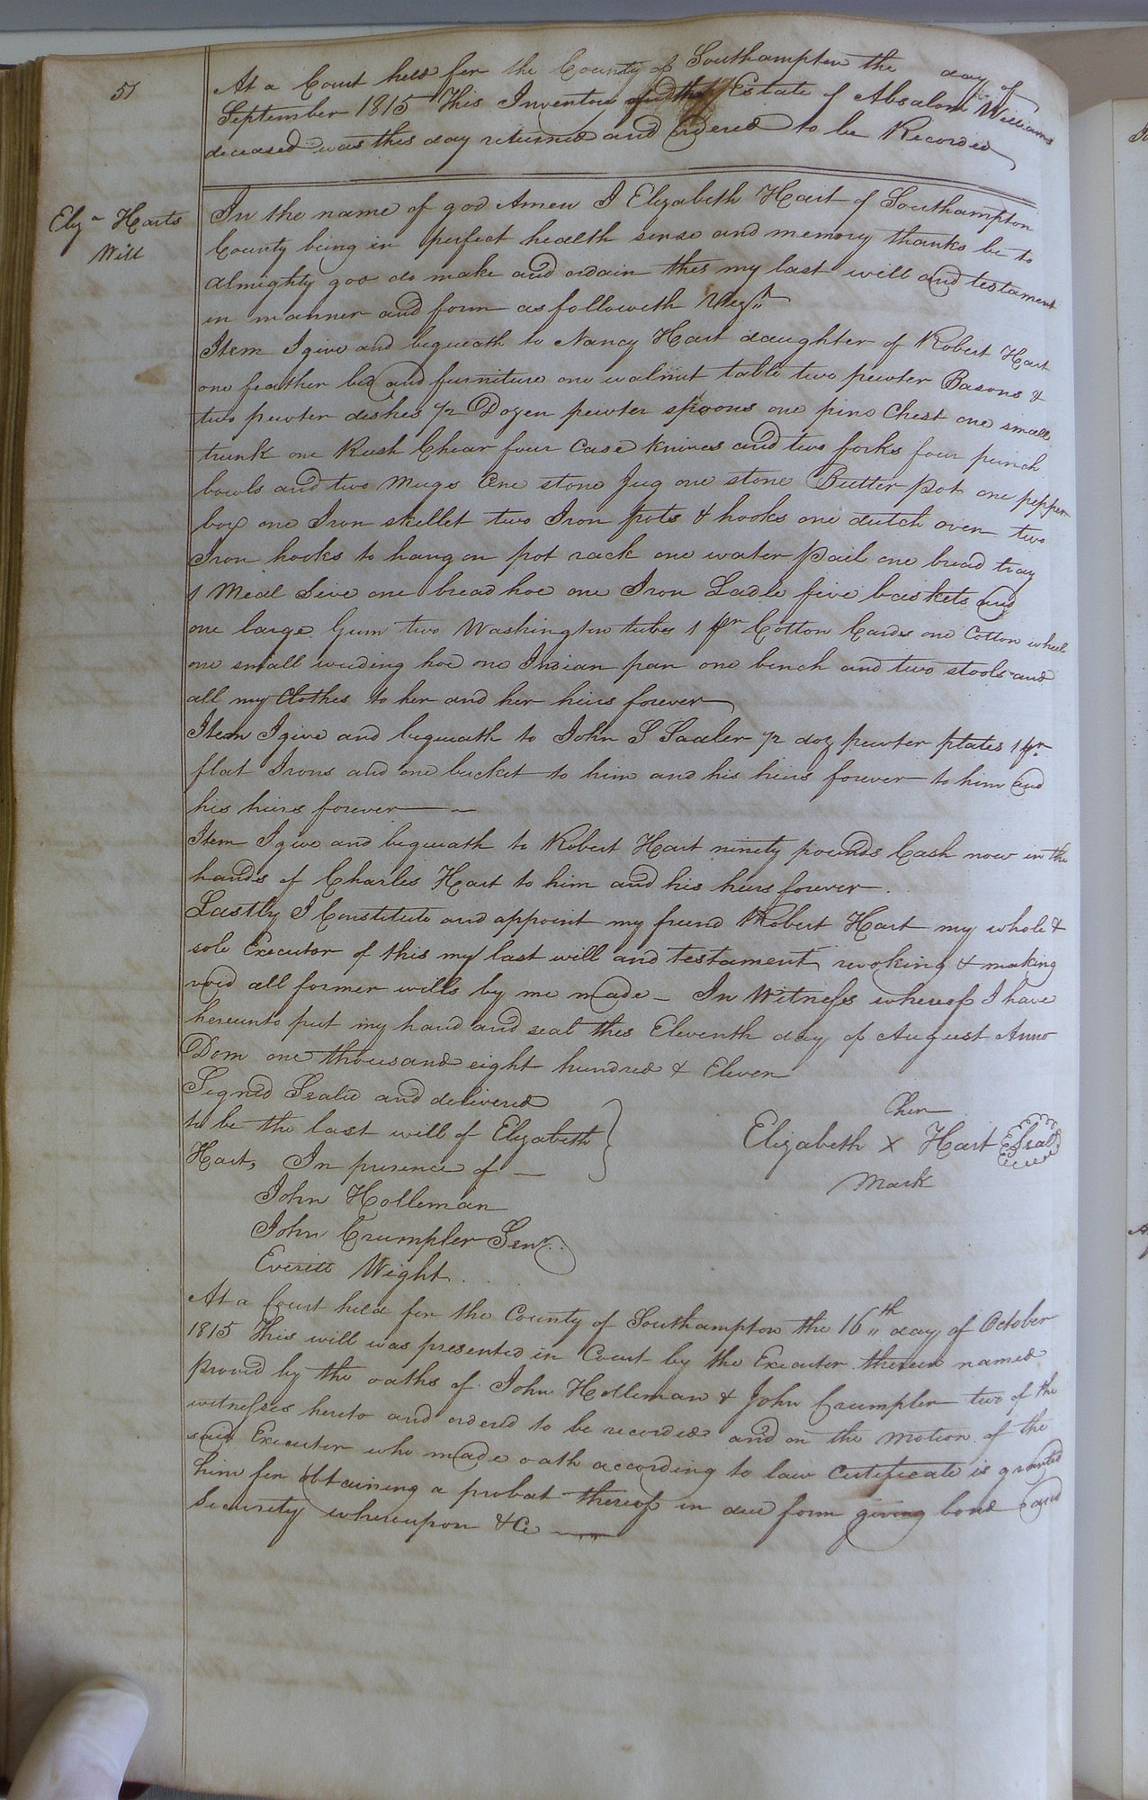 51
At a Court held for the County of Southampton the day of
September 1815 This Inventory of the Estate of Absalom Williams
deceased was this day returned and ordered to be Recorded
Elza Harts
Will
In the name of god Amen I Elizabeth Hart of Southampton
County being in perfect health sense and memory thanks be to
almighty god do make and ordain this my last will and testament
in manner and form as followeth Vizt
Item I give and bequeath to Nancy Hart daughter of Robert Hart
one feather bed and furniture one walnut table two pewter Basons &
two pewter dishes 1/2 Dozen pewter spoons one pine Chest one small
trunk one Rush Chear four case knives and two forks four punch
bowls and two mugs One stone Jug one stone Butter pot one pepper
box one Iron skellet two Iron pots & hooks one dutch oven two
Iron hooks to hang on pot rack one water pail one bread tray
1 Meal Sive one bread hoe one Iron Ladle five baskets and
one large Gum two Washington tubs 1 pr Cotton Cards one Cotton wheel
one small weeding hoe one Indian pan one bench and two stools and
all my Clothes to her and her heirs forever
Item I give and bequeath to John S Sadler 1/2 doz pewter plates 1 pr
flat Irons and one bucket to him and his heirs forever to him and
his heirs forever
Item I give and bequeath to Robert Hart ninety pounds Cash now in the
hands of Charles Hart to him and his heirs forever.
Lastly I Constitute and appoint my friend Robert Hart my whole &
sole Executor of this my last will and testament revoking & making
void all former wills by me made – In Witness whereof I have
hereunto put my hand and seal this Eleventh day of August Anno
Dom one thousand eight hundred & Eleven
Signd Sealed and delivered
to be the last will of Elizabeth
Hart, In presence of —
her
Elizabeth X Hart Seal
Mark
John Holleman
John Crumpler Senr.
Everitt Wight.
At a Court held for the County of Southampton the 16th day of October
1815 This will was presented in Court by the Executor therein named
proved by the oaths of John Holleman & John Crumpler two of the
witnesses hereto and ordered to be recorded and on the motion of the
said Executor who made oath according to law Certificate is granted
him for obtaining a probat thereof in due form giving bond and
Security whereupon &c